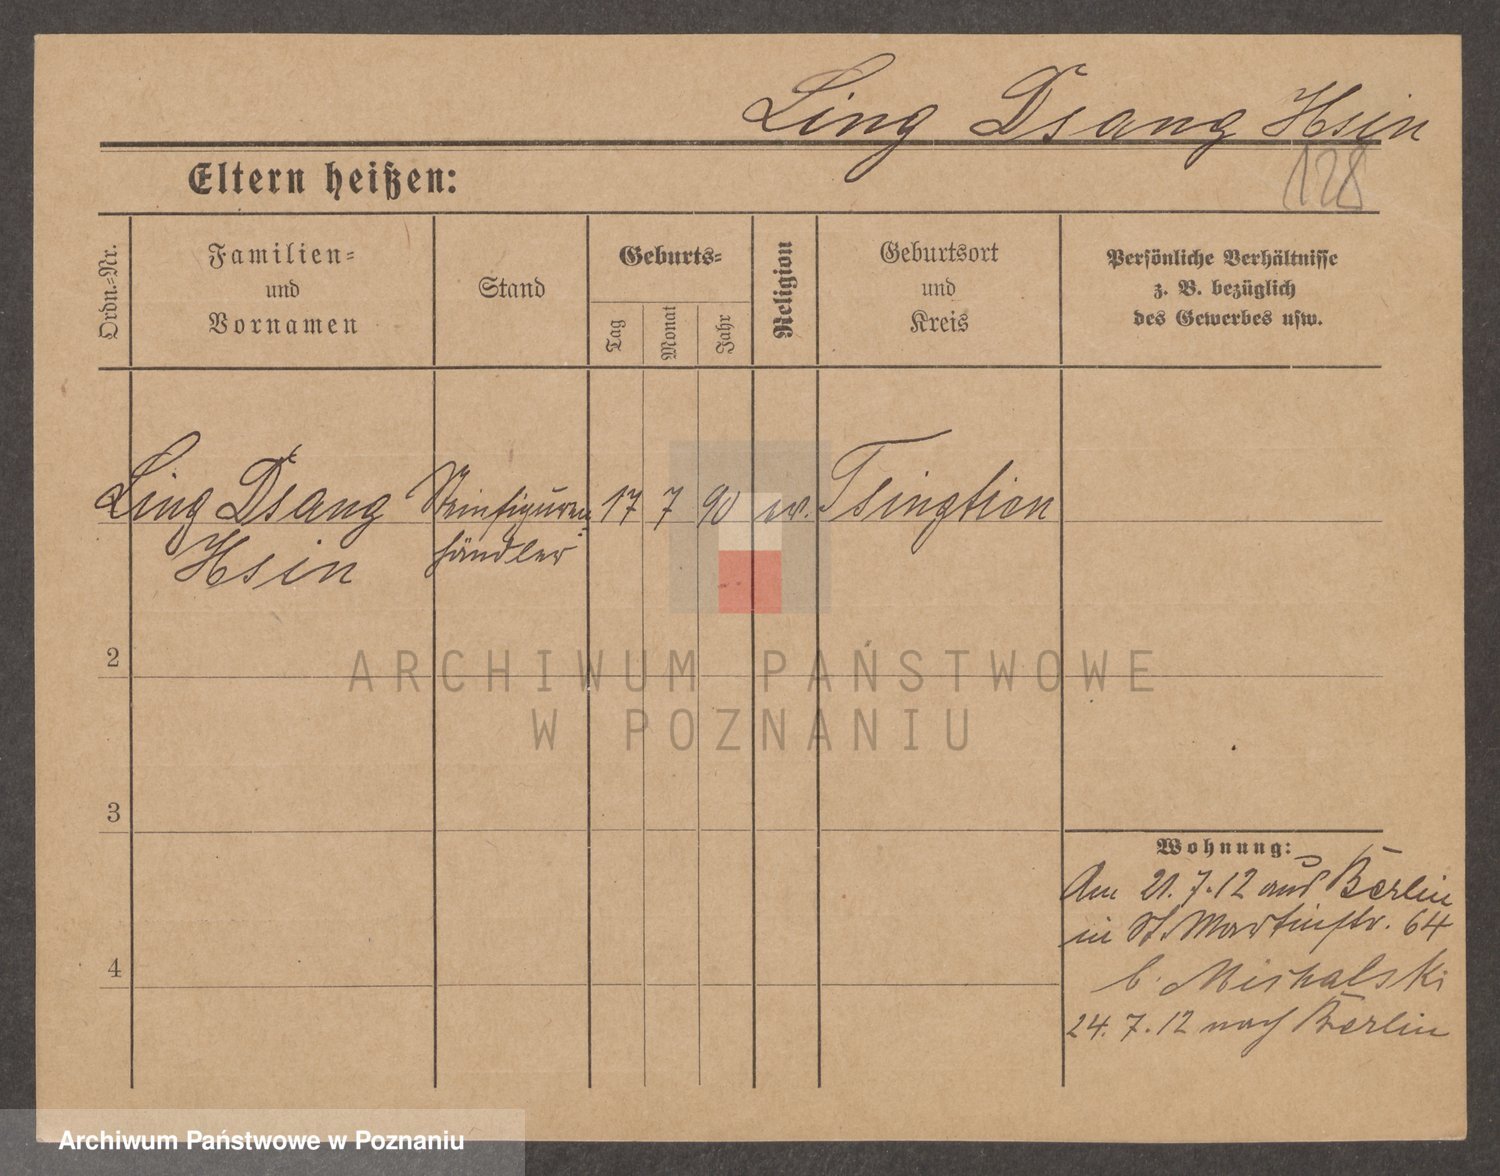 Ling Dsang Hsin
128
Eltern heißen:
Ordn.-Nr.
Familien-
und
Vornamen
Stand
Geburts-
Tag
Monat
Jahr
Religion
Geburtsort
und
Kreis
Persönliche Verhältnisse
z. B. bezüglich
des Gewerbes usw.
Ling Dsang
Hsin
Steinfiguren-
händler
17
7
90
ev.
Tsingtien
2
3
4
Wohnung:
Am 21.7.12 aus Berlin
in St. Martinstr. 64
b. Michalski
24.7.12 nach Berlin
ARCHIWUM PAŃSTWOWE
W POZNANIU
Archiwum Państwowe w Poznaniu